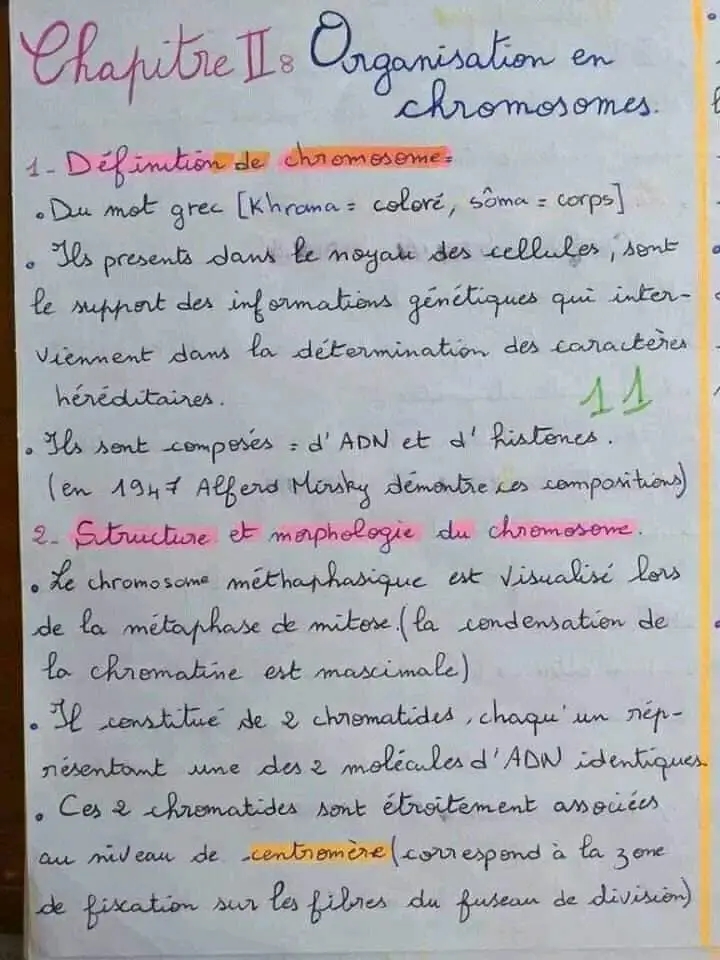 Chapitre II: Organisation en
chromosomes.
1- Définition de chromosome =
• Du mot grec [Khroma = coloré, sôma = corps]
• Ils presents dans le noyau des cellules, sont
le support des informations génétiques qui inter-
viennent dans la détermination des caractères
héréditaires.
11
• Ils sont composés = d'ADN et d'histones.
(en 1947 Alferd Mirsky démontre ces compositions)
2- Structure et morphologie du chromosome.
• Le chromosome méthaphasique est visualisé lors
de la métaphase de mitose. (la condensation de
la chromatine est mascimale)
• Il constitué de 2 chromatides, chaqu'un rép-
résentant une des 2 molécules d'ADN identiques.
• Ces 2 chromatides sont étroitement associées
au niveau de centromère (correspond à la zone
de fiscation sur les fibres du fuseau de division)